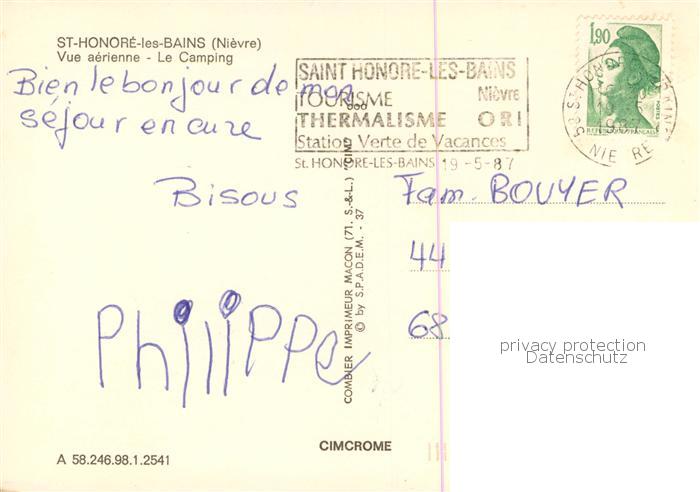 ST-HONORÉ-les-BAINS (Nièvre)
Vue aérienne - Le Camping
Bien le bonjour de mon
séjour en cure
Bisous
Philippe
SAINT HONORE-LES-BAINS
TOURISME Nièvre
THERMALISME ORL
Station Verte de Vacances
St. HONORE-LES-BAINS 19-5-87
1,90
REPUBLIQUE FRANCAISE
58 ST-HONORE
NIEVRE
Fam. BOUYER
44
68
COMBIER IMPRIMEUR MACON (71. S.-&-L.) "CIM"
© by S.P.A.D.E.M. - 37
privacy protection
Datenschutz
CIMCROME
A 58.246.98.1.2541